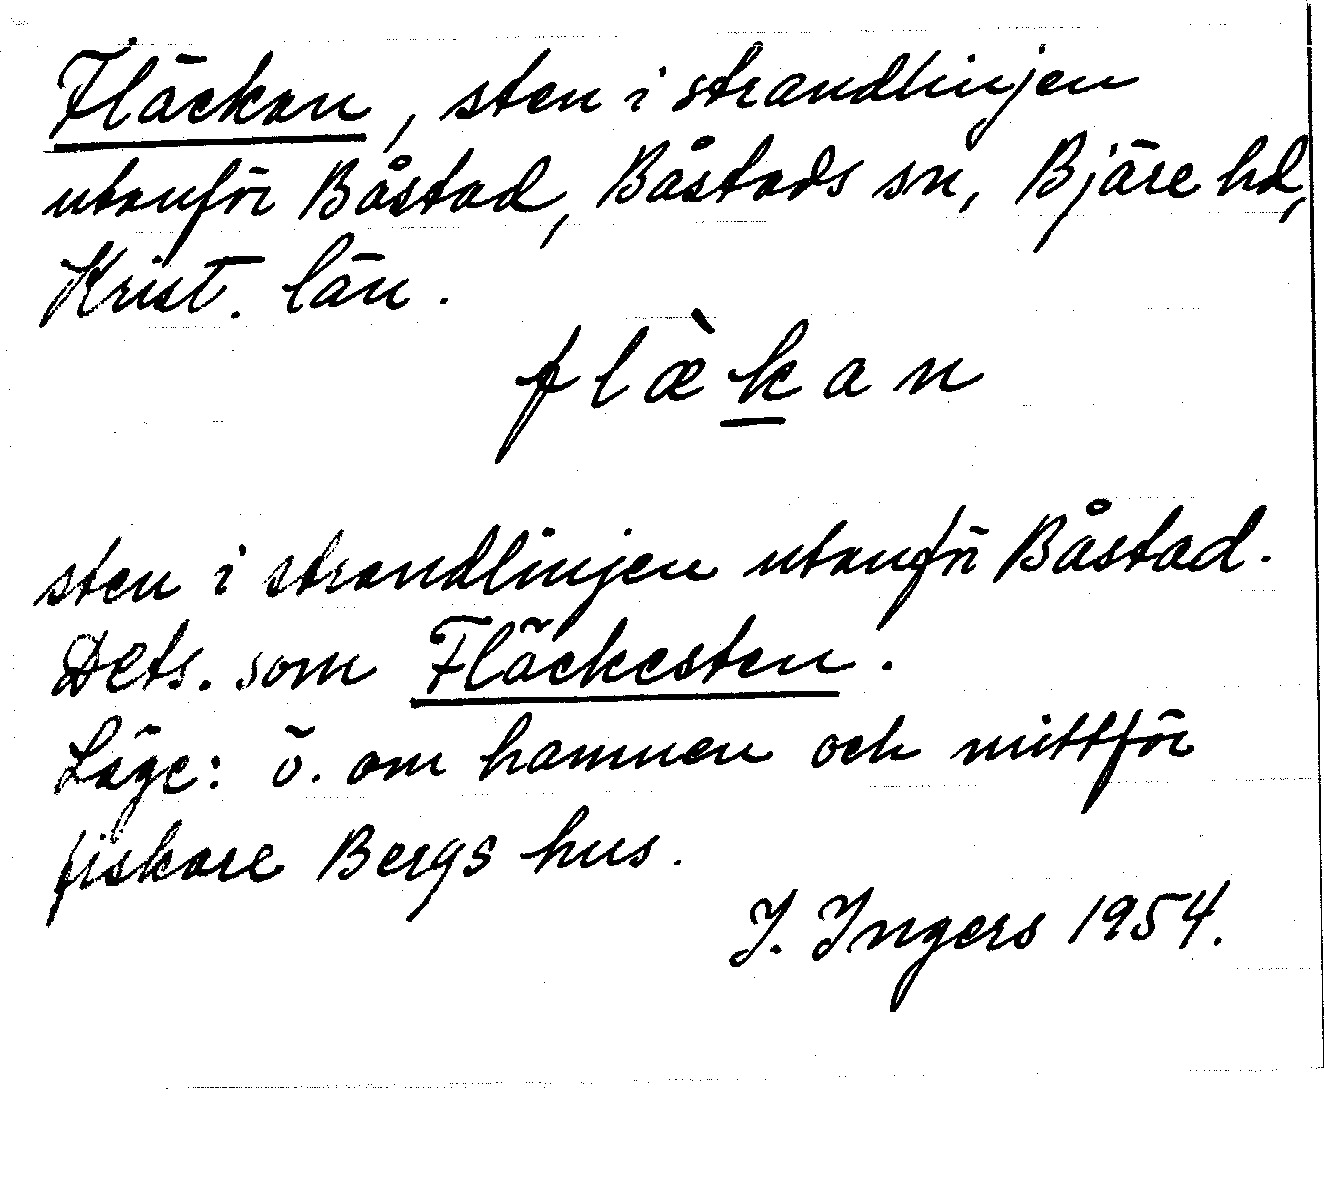 Fläckan, sten i strandlinjen
utanför Båstad, Båstads sn, Bjäre hd,
Krist. län.
flæ̀k̲an
sten i strandlinjen utanför Båstad.
Dets. som Fläckesten.
Läge: ö. om hamnen och mittför
fiskare Bergs hus.
I. Ingers 1954.